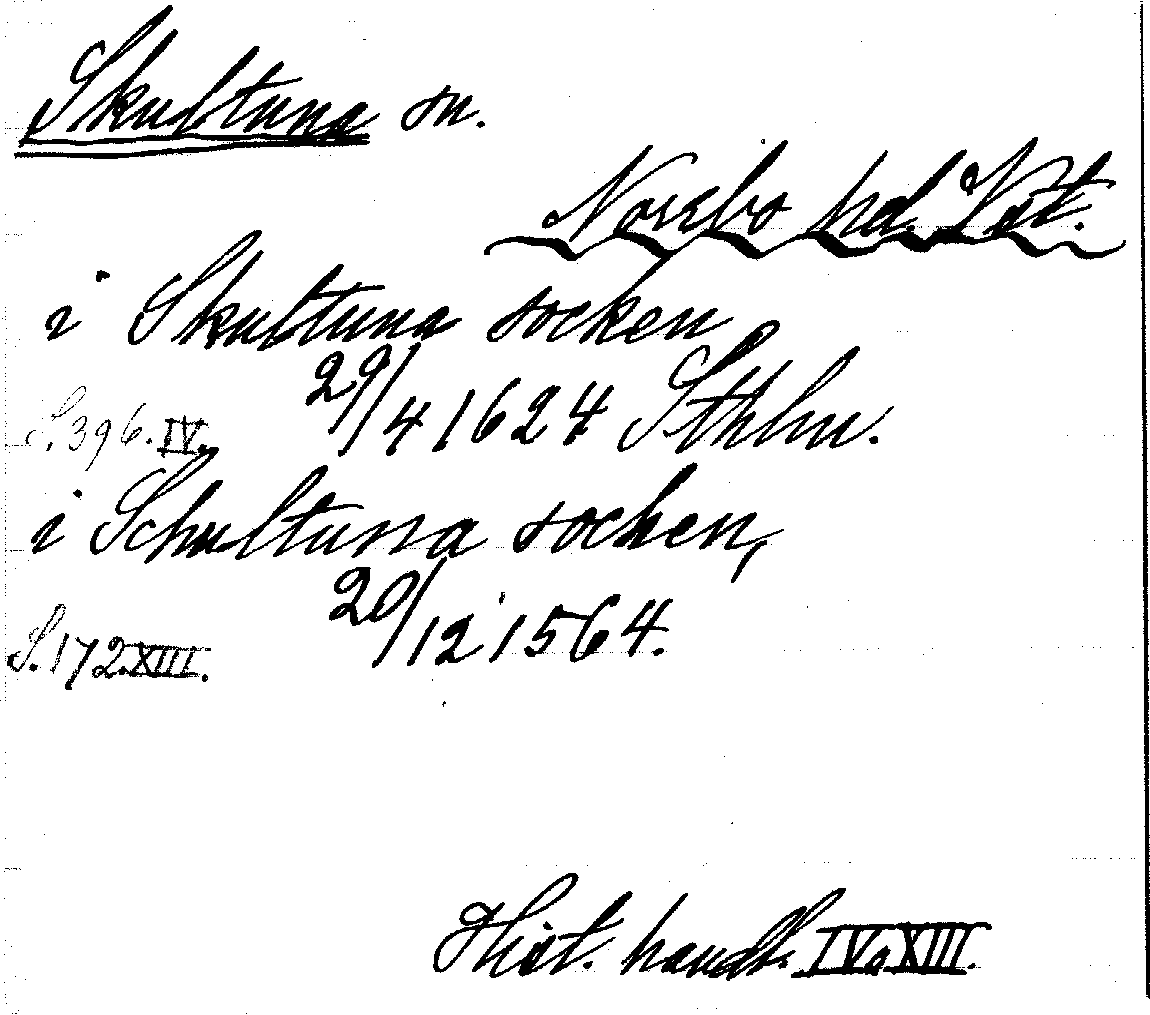 Skultuna sn.
Norrbo hd. Vstm.
i Skultuna socken
29/4 1624 Sthlm.
S. 396. IV.
i Schultuna sochen,
20/12 1564.
S. 172. XIII.
Hist. handl. IV o XIII.